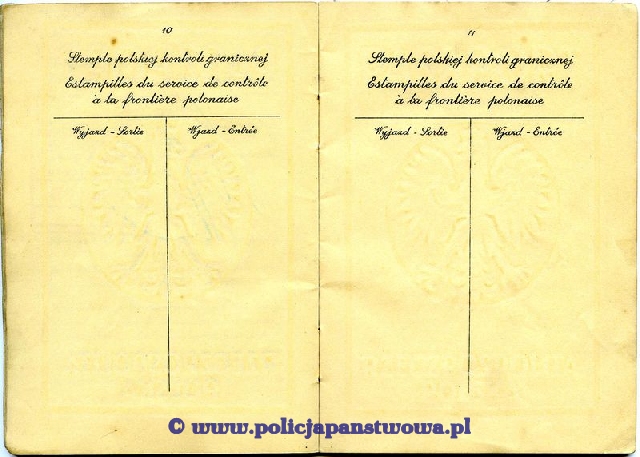 10
Stemple polskiej kontroli granicznej
Estampilles du service de contrôle
à la frontière polonaise
Wyjazd - Sortie
Wjazd - Entrée
11
Stemple polskiej kontroli granicznej
Estampilles du service de contrôle
à la frontière polonaise
Wyjazd - Sortie
Wjazd - Entrée
© www.policjapanstwowa.pl